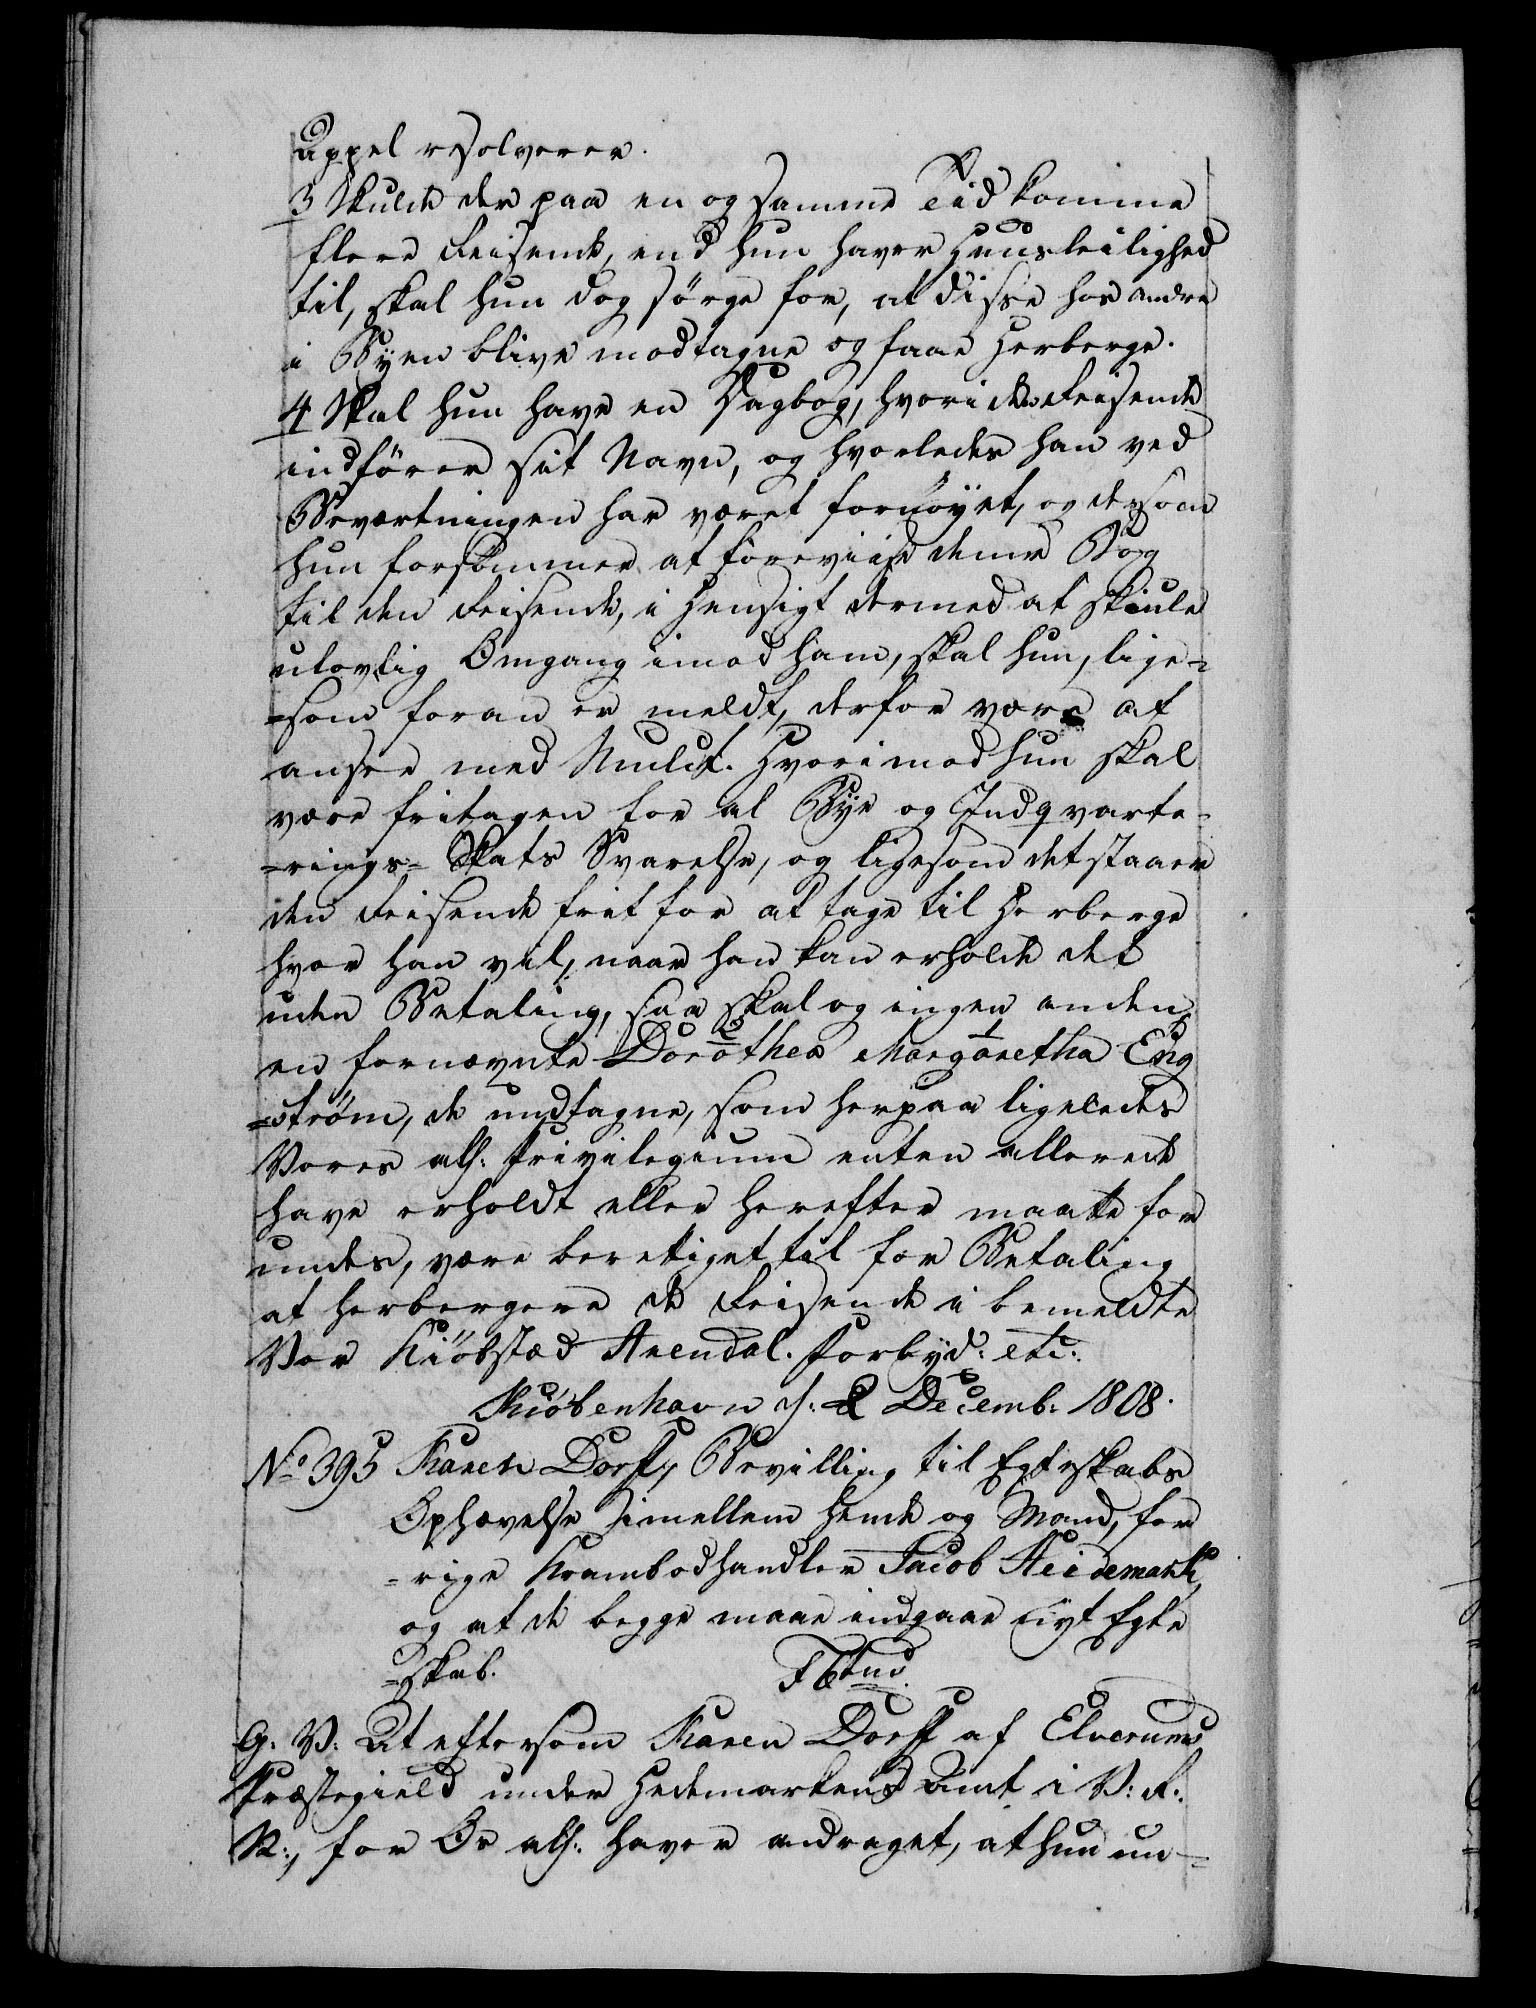 Appel resolverer.
3 Skulde der paa en og samme Tid komme
flere Reisende, end hun haver Huusleilighed
til, skal hun dog sørge for, at disse hos andre
i Byen blive modtagne og faae Herberge.
4 Skal hun have en Dagbog, hvori den Reisende
indfører sit Navn, og hvorledes han ved
Beværtningen har været fornøyet, og dersom
hun forsømmer at foreviise denne Bog
til den Reisende, i Hensigt dermed at skiule
ulovlig Omgang imod ham, skal hun, lige-
=som foran er meldt, derfor være at
ansee med Mulct. Hvorimod hun skal
være fritagen for al Bye og Indqvarte-
=rings= Skats Svarelse, og ligesom det staaer
den Reisende frit for at tage til Herberge
hvor han vil, naar han kan erholde det
uden Betaling, saa skal og ingen anden,
en fornævnte Dorothea Margaretha Eng
=strøm, de undtagne, som herpaa ligeledes
Vores alh: Privilegium enten allerede
have erholdt eller herefter maatte for
undes, være berettiget til for Betaling
at herbergere de Reisende i bemeldte
Vor Kiøbstæd Arendal. Forbyd: etc:
Kiøbenhavn d: 2 Decemb: 1808.
No 395 Karen Dorff, Bevilling til Egteskabs
Ophævelse imellem hende og Mand, for
=rige Krambodhandler Jacob Heidemark,
og at de begge maae indgaae nyt Egte
=skab.
G: V: At eftersom Karen Dorff af Elverums
Præstegield under Hedemarkens Amt i V: R:
N:, for Os alh: haver andraget, at hun un-